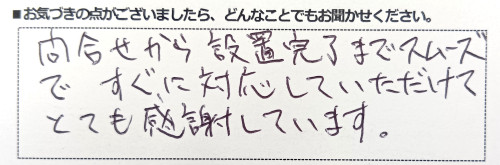 ■お気づきの点がございましたら、どんなことでもお聞かせください。
問合せから設置完了までスムーズ
ですぐに対応していただけて
とても感謝しています。